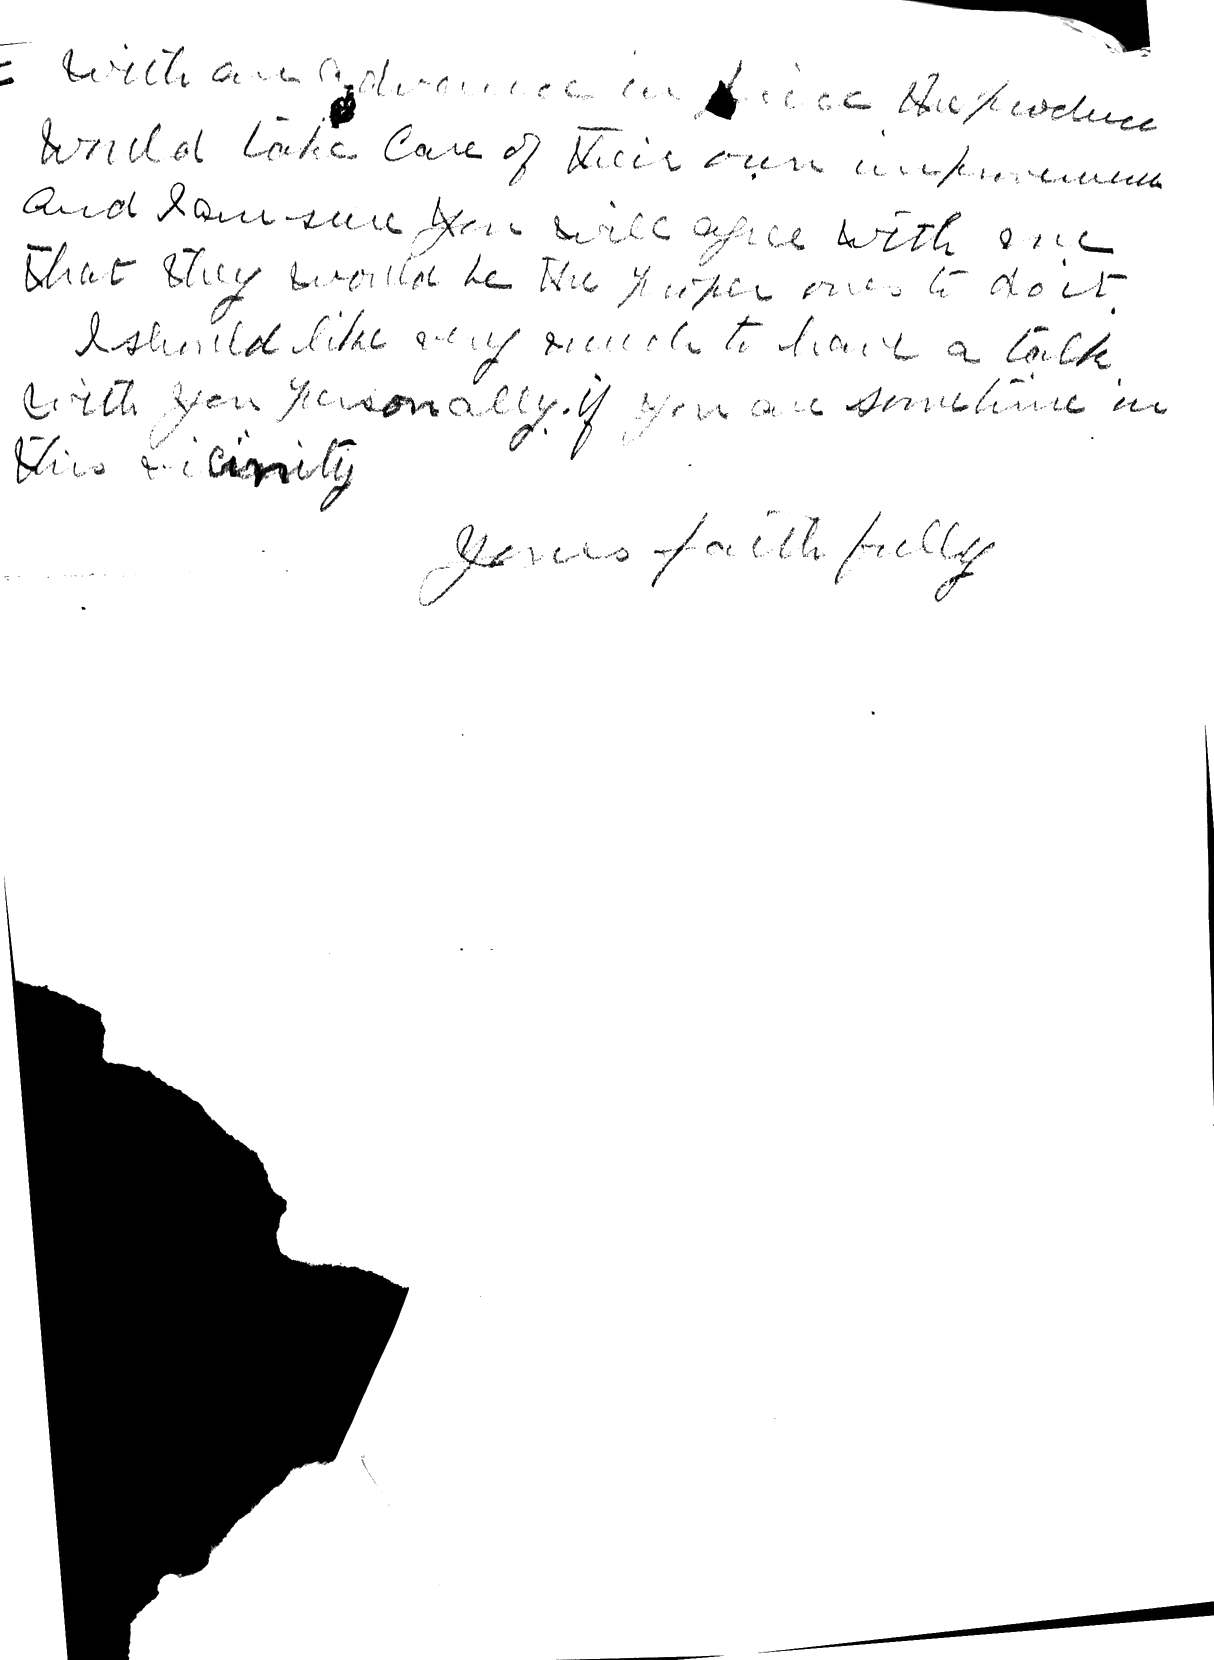 with an advance in price the produce
would take care of their own improvements
and I am sure you will agree with me
that they would be the proper ones to do it.
I should like very much to have a talk
with you personally. if you are sometime in
this vicinity
Yours faithfully